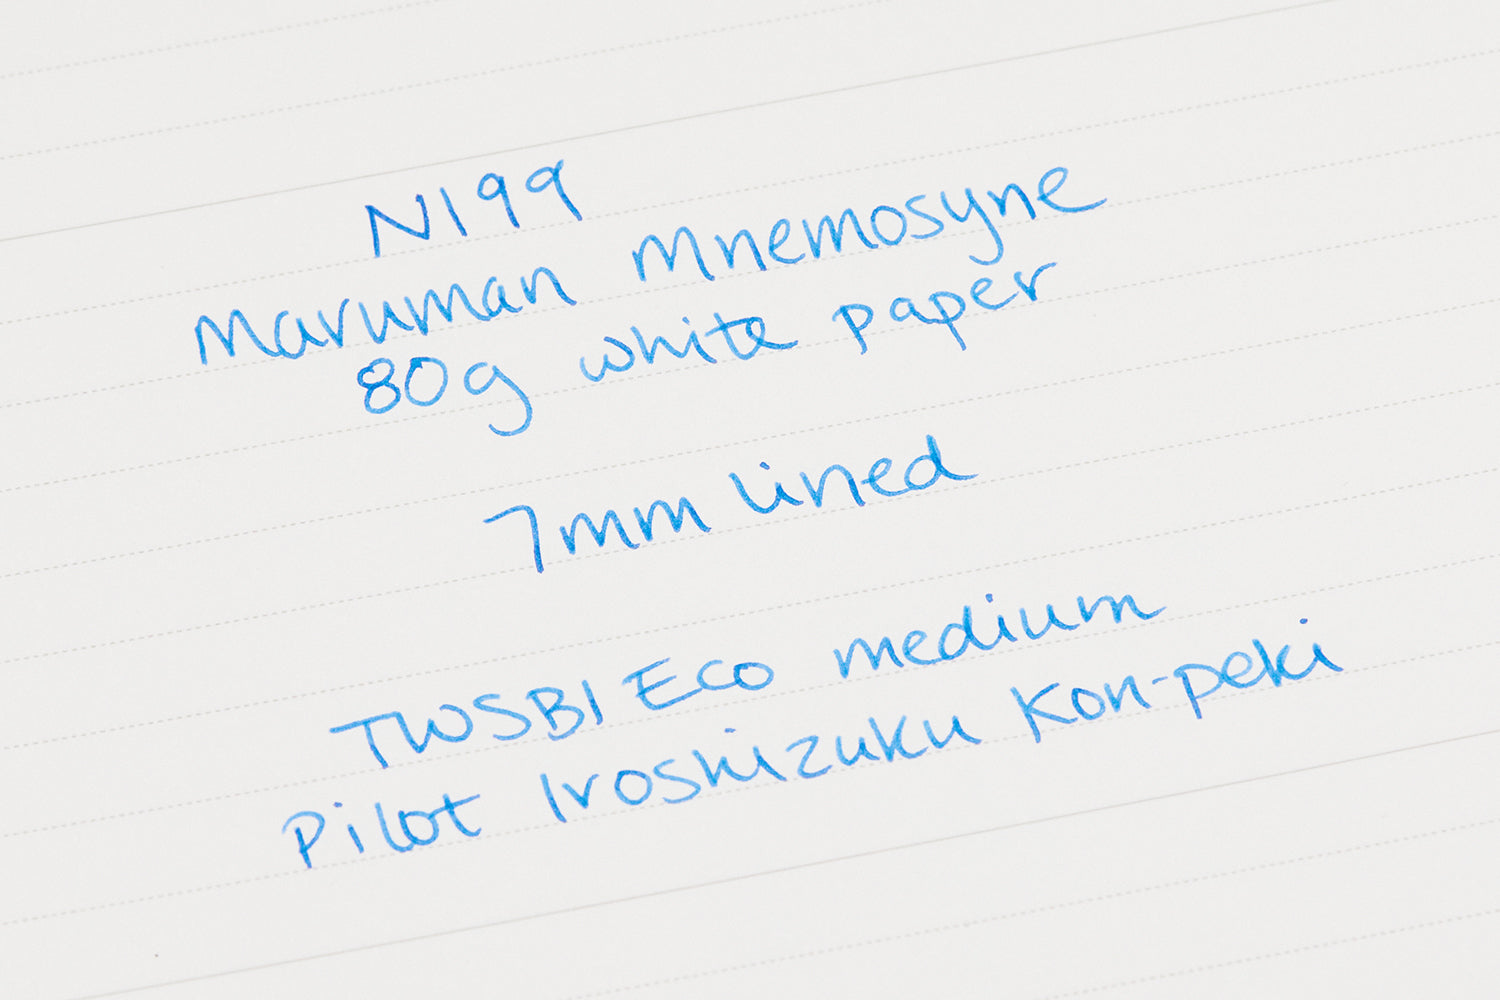 N199
Maruman Mnemosyne
80g white paper
7mm lined
TWSBI Eco medium
Pilot Iroshizuku Kon-peki